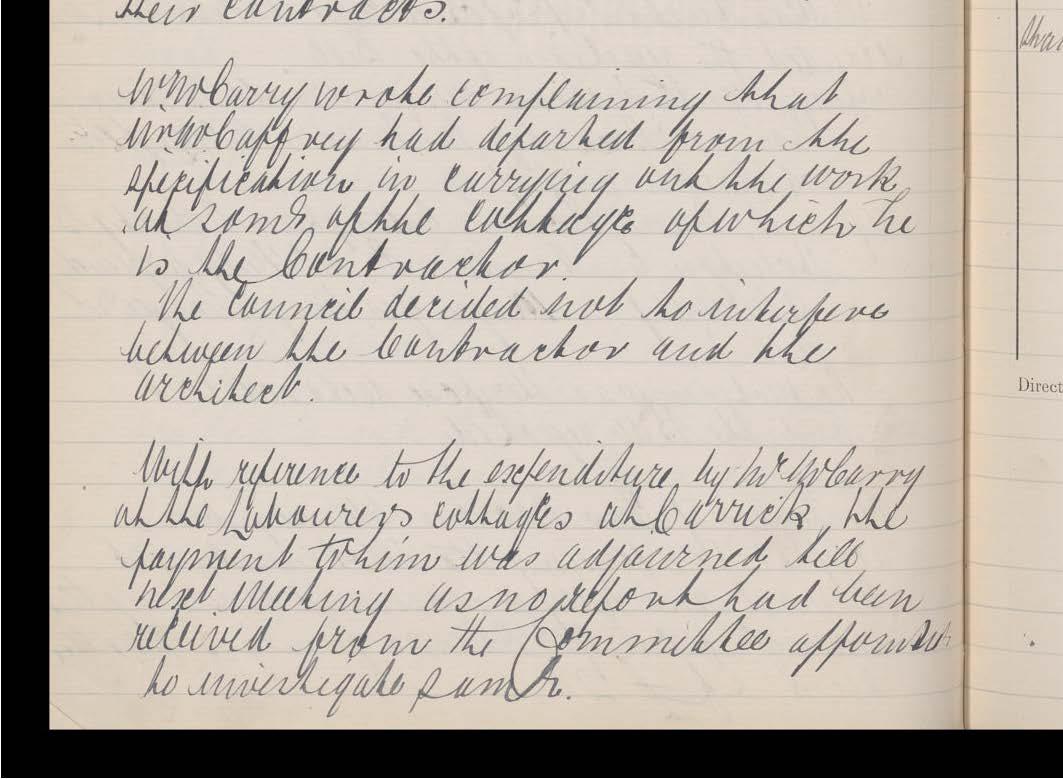 their contracts.
Mr McCarry wrote complaining that
Mr McCaffrey had departed from the
specification in carrying out the work
at some of the cottages of which he
is the Contractor.
The Council decided not to interfere
between the Contractor and the
architect.
With reference to the expenditure by Mr McCarry
at the Labourers cottages at Carrick, the
payment to him was adjourned till
next Meeting as no report had been
received from the Committee appointed
to investigate same.
Direct